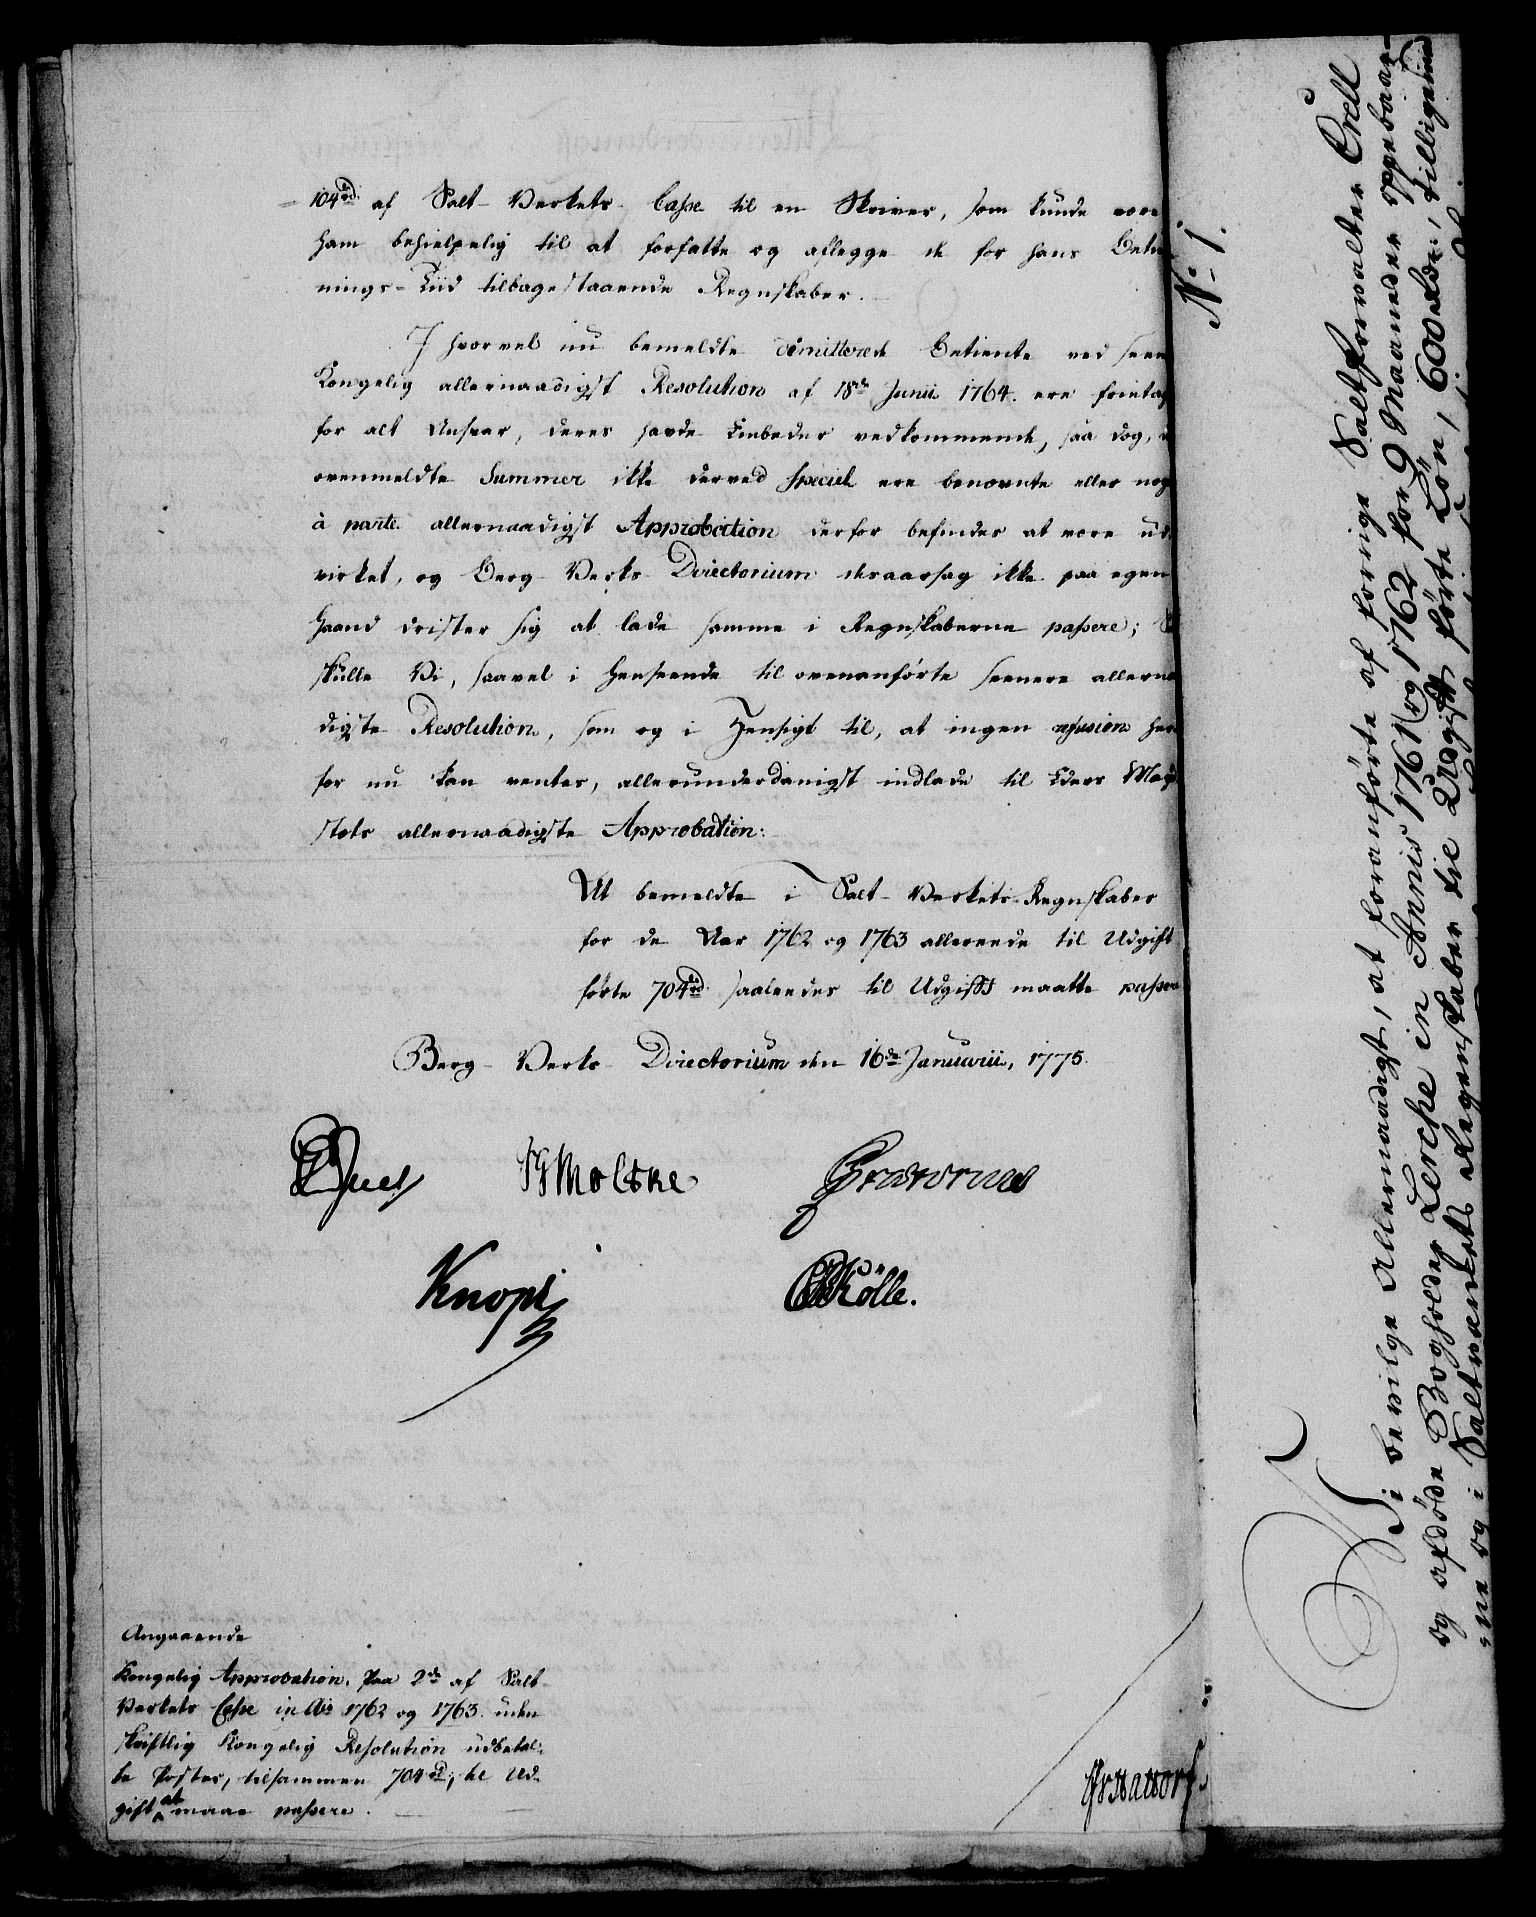 104 rd. af Salt-Verkets Casse til en Skriver, som kunde være
ham behielpelig til at forfatte og aflegge de for hans Betie
nings-Tiid tilbagestaaende Regnskaber.
Ihvorvel nu bemeldte dimitterede Betiente ved seen
Kongelig allernaadigst Resolution af 18de Junii 1764. ere frietag
for alt Ansvar, deres havde Embeder vedkommende, saa dog, a
ovenmeldte Summer ikke derved speciel ere benævnte eller nog
à parte allernaadigst Approbation derfor befindes at være ud
virket, og Berg-Verks Directorium desaarsag ikke paa egen
Haand drister sig at lade samme i Regnskaberne passere; Sa
skulle Vi, saavel i Henseende til ovenanførte seenere allerna
digste Resolution, som og i Hensigt til, at ingen refusion her
for nu kan ventes, allerunderdanigst indlade til Eders Maje
stæts allernaadigste Approbation:
At bemeldte i Salt-Verkets Regnskaber
for de Aar 1762 og 1763 allerede til Udgift
førte 704 rd. saaledes til Udgift maatte passere
Berg-Verks Directorium den 16de Januarii, 1775.
Juel Moltke
Knopf Kølle.
Angaaende
Kongelig Approbation, paa 2de af Salt-
Verkets Casse in Ais 1762 og 1763. uden
skriftlig Kongelig Resolution udbetal-
te Poster, tilsammen 704 rd, til Ud-
gift at maae passere.
No 1.
Vi bevilge Allernaadigst, at foranførte af forrige Saltforvalter Crell
og afdøde Bogholder Lerche in Annis 1761 og 1762 for 9 Maaneder oppebaar-
ne og i Saltværkets Regenskaber til Udgift førte Løn, 600 Rdr., tilligemed